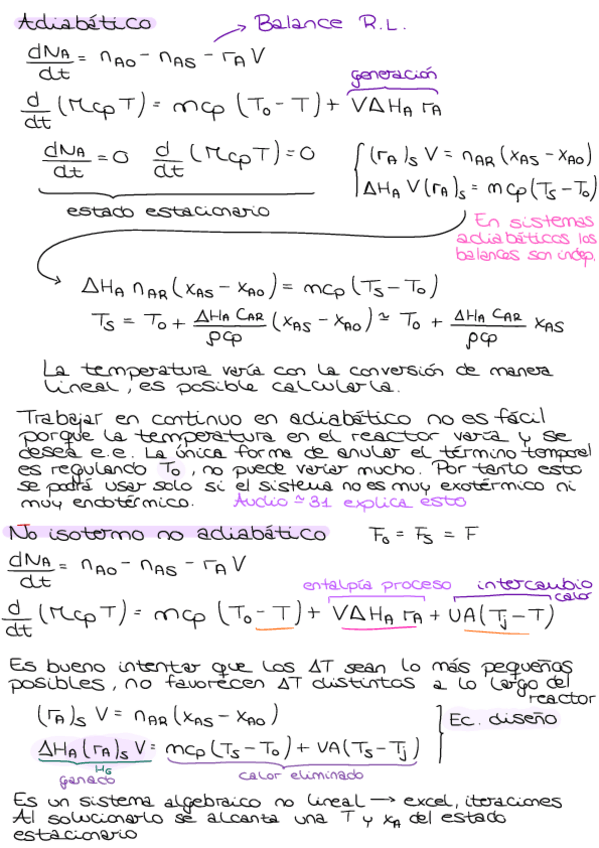 Adiabático
Balance R.L.
dNA/dt = nAo - nAs - rA V
generación
d/dt (M cp T) = m cp (To - T) + VΔHA rA
dNA/dt = 0 d/dt (M cp T) = 0
estado estacionario
(rA)s V = nAR (xAs - xAo)
ΔHA V (rA)s = m cp (Ts - To)
En sistemas
adiabáticos los
balances son indep.
ΔHA nAR (xAs - xAo) = m cp (Ts - To)
Ts = To + ΔHA CAR/ρcp (xAs - xAo) ≃ To + ΔHA CAR/ρcp xAs
La temperatura varía con la conversión de manera
lineal, es posible calcularla.
Trabajar en continuo en adiabático no es fácil
porque la temperatura en el reactor varía y se
desea e.e. La única forma de anular el término temporal
es regulando To, no puede variar mucho. Por tanto esto
se podrá usar solo si el sistema no es muy exotérmico ni
muy endotérmico. Audio ≃ 31 explica esto
No isotermo no adiabático Fo = Fs = F
dNA/dt = nAo - nAs - rA V
entalpía proceso intercambio
calor
d/dt (M cp T) = m cp (To - T) + VΔHA rA + UA (Tj - T)
Es bueno intentar que los ΔT sean lo más pequeños
posibles, no favorecen ΔT distintos a lo largo del
reactor
(rA)s V = nAR (xAs - xAo)
Ec. diseño
ΔHA (rA)s V = m cp (Ts - To) + UA (Ts - Tj)
HG
ganado
calor eliminado
Es un sistema algebraico no lineal → excel, iteraciones
Al solucionarlo se alcanta una T y xA del estado
estacionario